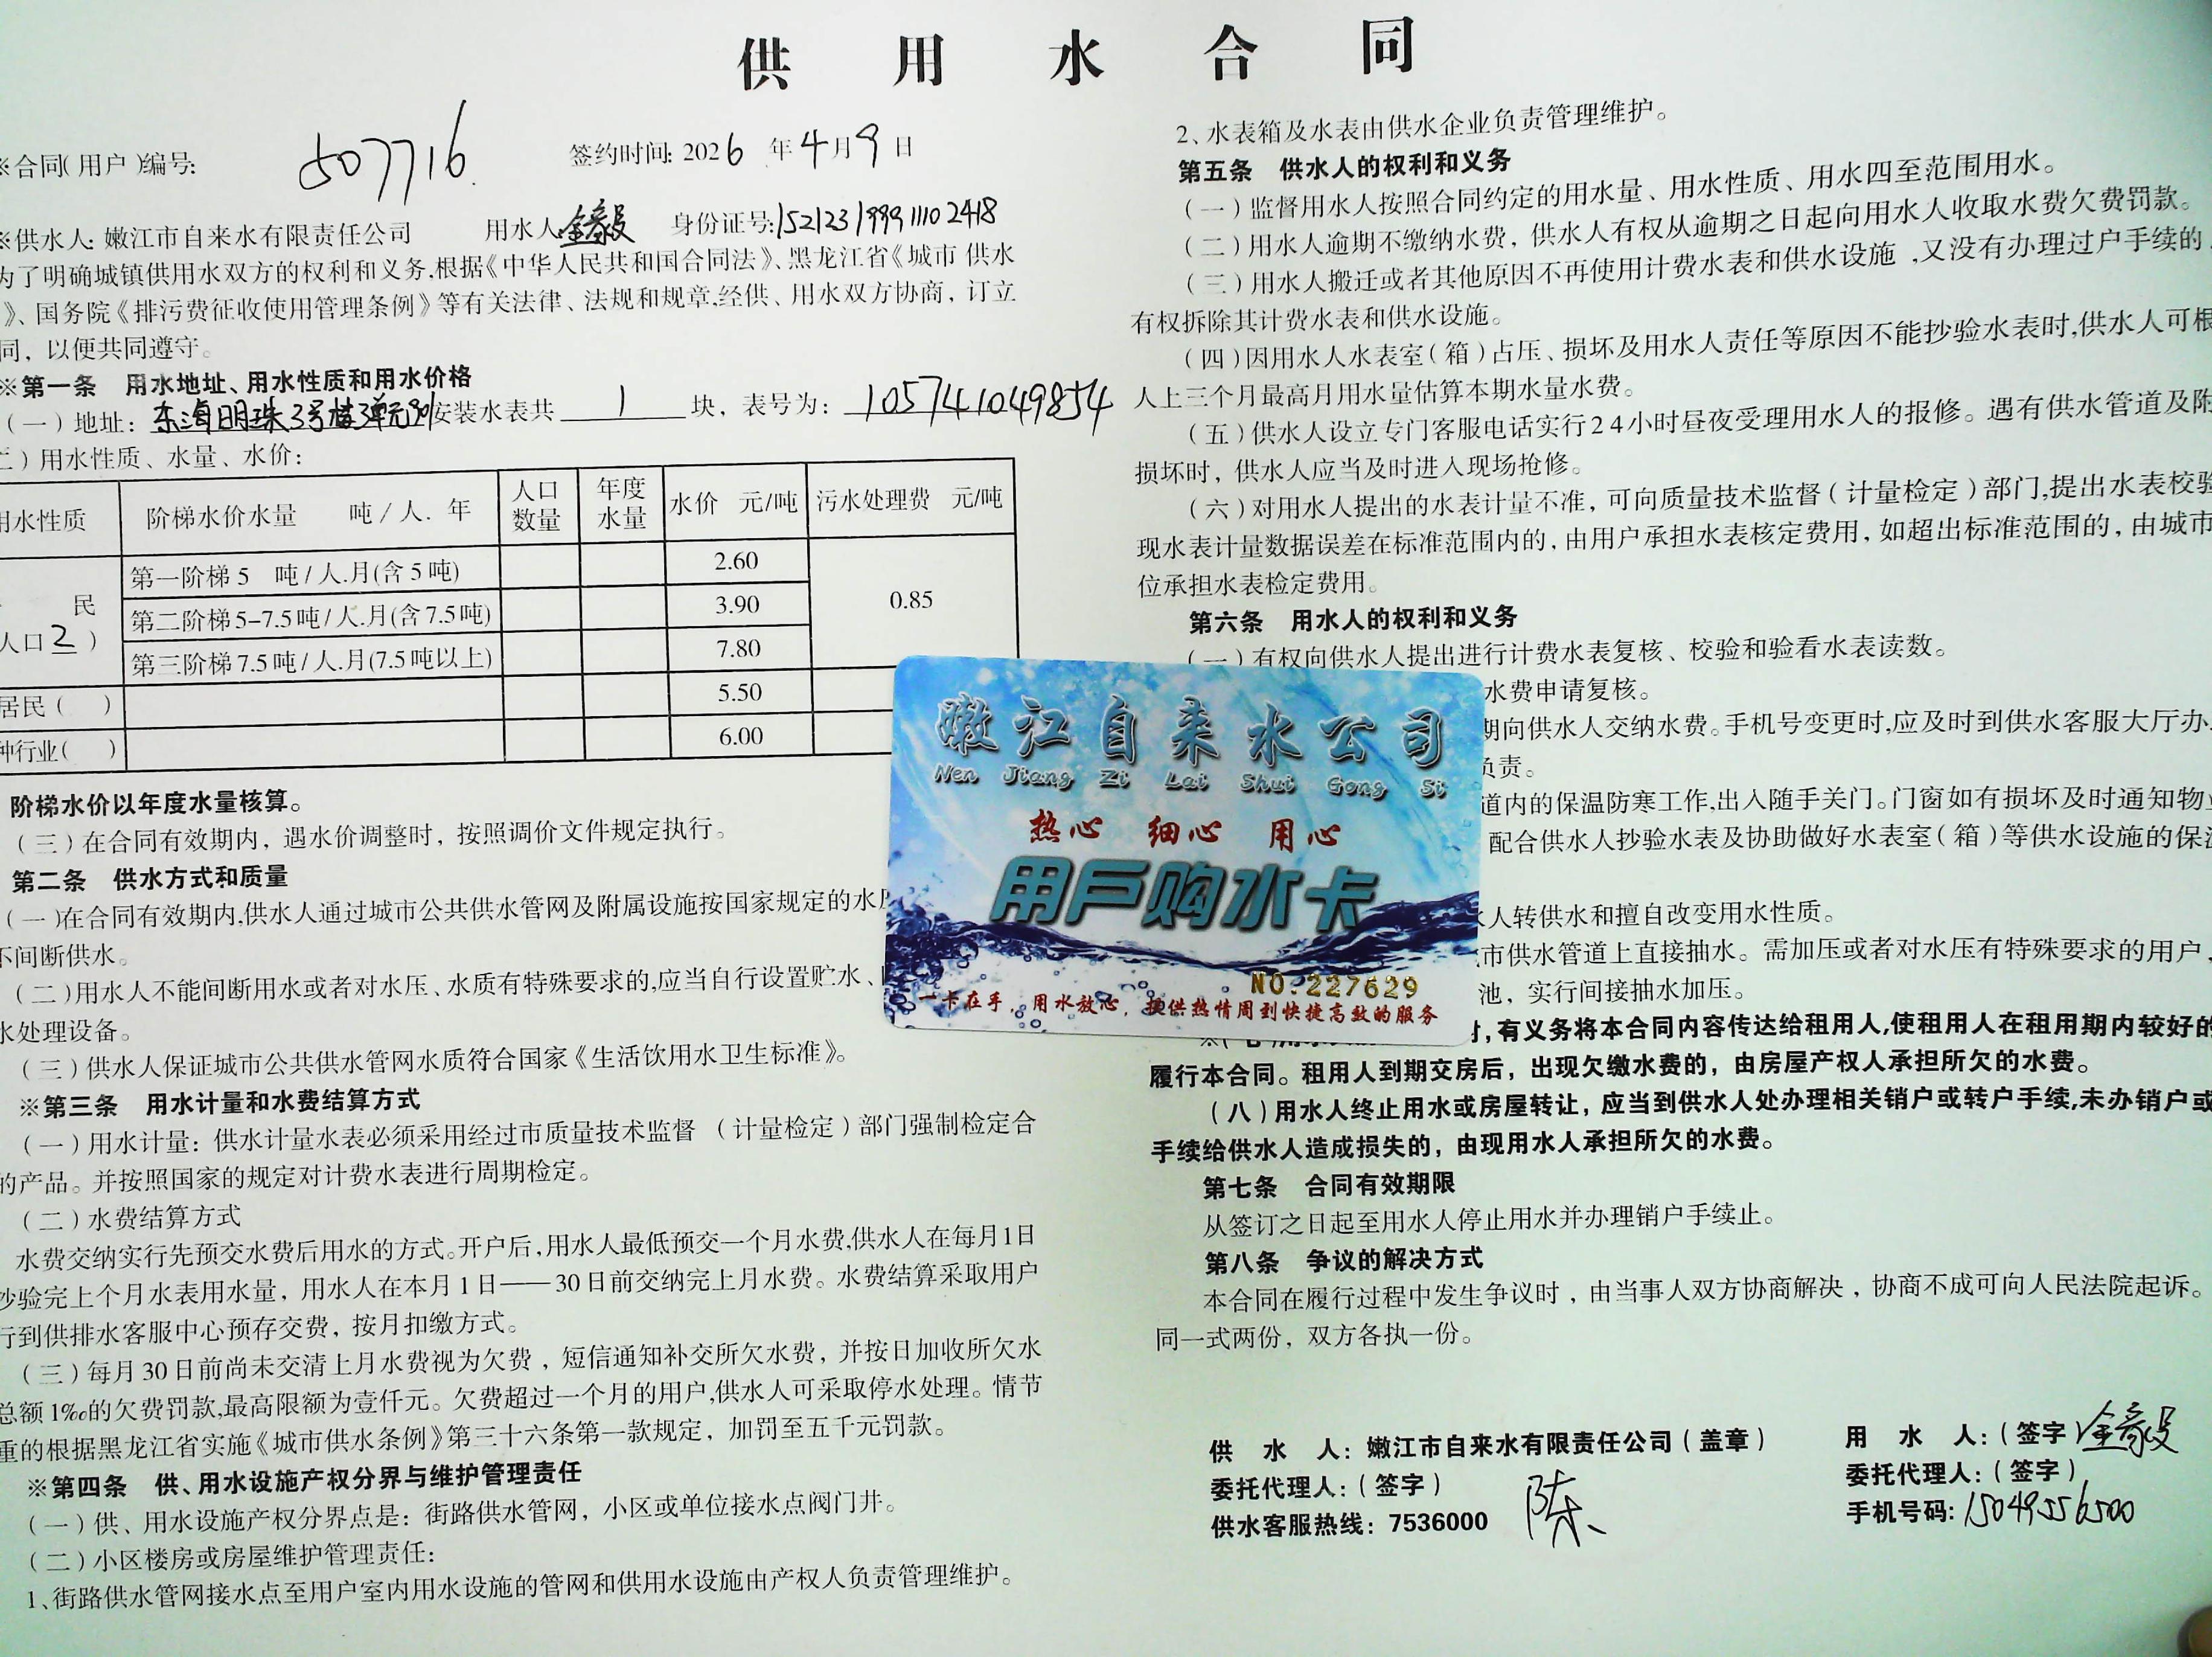 供用水合同
※合同(用户)编号: 507716 签约时间: 2026年4月9日
※供水人: 嫩江市自来水有限责任公司 用水人: 金毅 身份证号: 152123199911102418
为了明确城镇供用水双方的权利和义务,根据《中华人民共和国合同法》、黑龙江省《城市 供水
》、国务院《排污费征收使用管理条例》等有关法律、法规和规章,经供、用水双方协商, 订立
同, 以便共同遵守。
※第一条 用水地址、用水性质和用水价格
(一)地址: 东海明珠3号楼3单元 安装水表共 1 块, 表号为: 105741049854
二)用水性质、水量、水价:
用水性质 阶梯水价水量 吨/人. 年 人口数量 年度水量 水价 元/吨 污水处理费 元/吨
民 第一阶梯 5 吨/人.月(含5吨) 2.60 0.85
人口2) 第二阶梯5-7.5吨/人.月(含7.5吨) 3.90
第三阶梯7.5吨/人.月(7.5吨以上) 7.80
居民( ) 5.50
种行业( ) 6.00
阶梯水价以年度水量核算。
(三)在合同有效期内, 遇水价调整时, 按照调价文件规定执行。
第二条 供水方式和质量
(一)在合同有效期内,供水人通过城市公共供水管网及附属设施按国家规定的水
不间断供水。
(二)用水人不能间断用水或者对水压、水质有特殊要求的,应当自行设置贮水、
水处理设备。
(三)供水人保证城市公共供水管网水质符合国家《生活饮用水卫生标准》。
※第三条 用水计量和水费结算方式
(一)用水计量: 供水计量水表必须采用经过市质量技术监督 (计量检定)部门强制检定合
的产品。并按照国家的规定对计费水表进行周期检定。
(二)水费结算方式
水费交纳实行先预交水费后用水的方式。开户后,用水人最低预交一个月水费,供水人在每月1日
抄验完上个月水表用水量, 用水人在本月1日——30日前交纳完上月水费。水费结算采取用户
行到供排水客服中心预存交费, 按月扣缴方式。
(三)每月30日前尚未交清上月水费视为欠费, 短信通知补交所欠水费, 并按日加收所欠水
总额1‰的欠费罚款,最高限额为壹仟元。欠费超过一个月的用户,供水人可采取停水处理。情节
重的根据黑龙江省实施《城市供水条例》第三十六条第一款规定, 加罚至五千元罚款。
※第四条 供、用水设施产权分界与维护管理责任
(一)供、用水设施产权分界点是: 街路供水管网, 小区或单位接水点阀门井。
(二)小区楼房或房屋维护管理责任:
1、街路供水管网接水点至用户室内用水设施的管网和供用水设施由产权人负责管理维护。
2、水表箱及水表由供水企业负责管理维护。
第五条 供水人的权利和义务
(一)监督用水人按照合同约定的用水量、用水性质、用水四至范围用水。
(二)用水人逾期不缴纳水费, 供水人有权从逾期之日起向用水人收取水费欠费罚款。
(三)用水人搬迁或者其他原因不再使用计费水表和供水设施 ,又没有办理过户手续的
有权拆除其计费水表和供水设施。
(四)因用水人水表室(箱)占压、损坏及用水人责任等原因不能抄验水表时,供水人可根
人上三个月最高月用水量估算本期水量水费。
(五)供水人设立专门客服电话实行24小时昼夜受理用水人的报修。遇有供水管道及附
损坏时, 供水人应当及时进入现场抢修。
(六)对用水人提出的水表计量不准, 可向质量技术监督(计量检定)部门,提出水表校验
现水表计量数据误差在标准范围内的, 由用户承担水表核定费用, 如超出标准范围的, 由城市
位承担水表检定费用。
第六条 用水人的权利和义务
(一)有权向供水人提出进行计费水表复核、校验和验看水表读数。
水费申请复核。
期向供水人交纳水费。手机号变更时,应及时到供水客服大厅办
负责。
道内的保温防寒工作,出入随手关门。门窗如有损坏及时通知物业
配合供水人抄验水表及协助做好水表室(箱)等供水设施的保温
人转供水和擅自改变用水性质。
市供水管道上直接抽水。需加压或者对水压有特殊要求的用户,
池, 实行间接抽水加压。
时, 有义务将本合同内容传达给租用人,使租用人在租用期内较好的
履行本合同。租用人到期交房后, 出现欠缴水费的, 由房屋产权人承担所欠的水费。
(八)用水人终止用水或房屋转让, 应当到供水人处办理相关销户或转户手续,未办销户或
手续给供水人造成损失的, 由现用水人承担所欠的水费。
第七条 合同有效期限
从签订之日起至用水人停止用水并办理销户手续止。
第八条 争议的解决方式
本合同在履行过程中发生争议时, 由当事人双方协商解决, 协商不成可向人民法院起诉。
同一式两份, 双方各执一份。
供 水 人: 嫩江市自来水有限责任公司(盖章)
委托代理人:(签字) 陈
供水客服热线: 7536000
用 水 人:(签字) 金毅
委托代理人:(签字)
手机号码: 15049556500
嫩江自来水公司
Nen Jiang Zi Lai Shui Gong Si
热心 细心 用心
用户购水卡
NO.227629
一卡在手, 用水放心, 提供热情周到快捷高效的服务